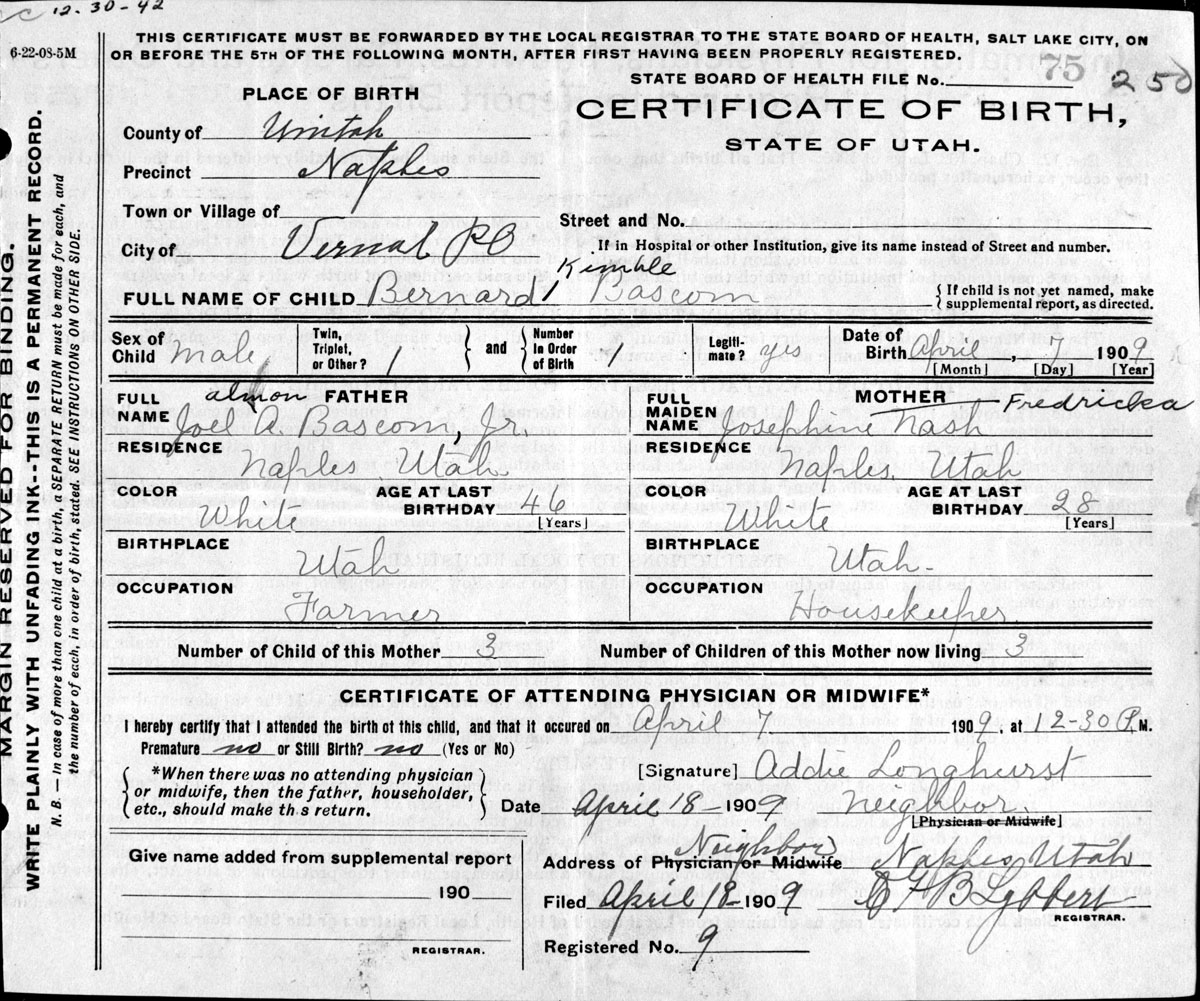 12-30-42
6-22-08-5M
THIS CERTIFICATE MUST BE FORWARDED BY THE LOCAL REGISTRAR TO THE STATE BOARD OF HEALTH, SALT LAKE CITY, ON
OR BEFORE THE 5TH OF THE FOLLOWING MONTH, AFTER FIRST HAVING BEEN PROPERLY REGISTERED.
STATE BOARD OF HEALTH FILE No. 75 250
MARGIN RESERVED FOR BINDING.
WRITE PLAINLY WITH UNFADING INK--THIS IS A PERMANENT RECORD.
N. B. — In case of more than one child at a birth, a SEPARATE RETURN must be made for each, and
the number of each, in order of birth, stated. SEE INSTRUCTIONS ON OTHER SIDE.
PLACE OF BIRTH
CERTIFICATE OF BIRTH,
STATE OF UTAH.
County of Uintah
Precinct Naples
Town or Village of
Street and No.
City of Vernal
If in Hospital or other Institution, give its name instead of Street and number.
Kimble
FULL NAME OF CHILD Bernard Bascom
{ If child is not yet named, make
supplemental report, as directed.
Sex of Child Male
Twin, Triplet, or Other? 1
and
Number In Order of Birth
Legiti- mate? yes
Date of Birth April, 7 1909
[Month] [Day] [Year]
FULL NAME almon FATHER
Joel A. Bascom, Jr.
RESIDENCE
Naples Utah
COLOR White
AGE AT LAST BIRTHDAY 46
[Years]
BIRTHPLACE
Utah
OCCUPATION
Farmer
FULL MAIDEN NAME MOTHER Fredricka
Josephine Nash
RESIDENCE
Naples, Utah
COLOR White
AGE AT LAST BIRTHDAY 28
[Years]
BIRTHPLACE
Utah-
OCCUPATION
Housekeeper.
Number of Child of this Mother 3
Number of Children of this Mother now living 3
CERTIFICATE OF ATTENDING PHYSICIAN OR MIDWIFE*
I hereby certify that I attended the birth of this child, and that it occured on April 7 1909, at 12-30 P.M.
Premature no or Still Birth? no (Yes or No)
*When there was no attending physician
or midwife, then the father, householder,
etc., should make th s return.
[Signature] Addie Longhurst
Date April 18- 1909 Neighbor
[Physician or Midwife]
Give name added from supplemental report
190
REGISTRAR.
Neighbor
Address of Physician or Midwife Naples Utah
Filed April 18- 1909
REGISTRAR.
Registered No. 9